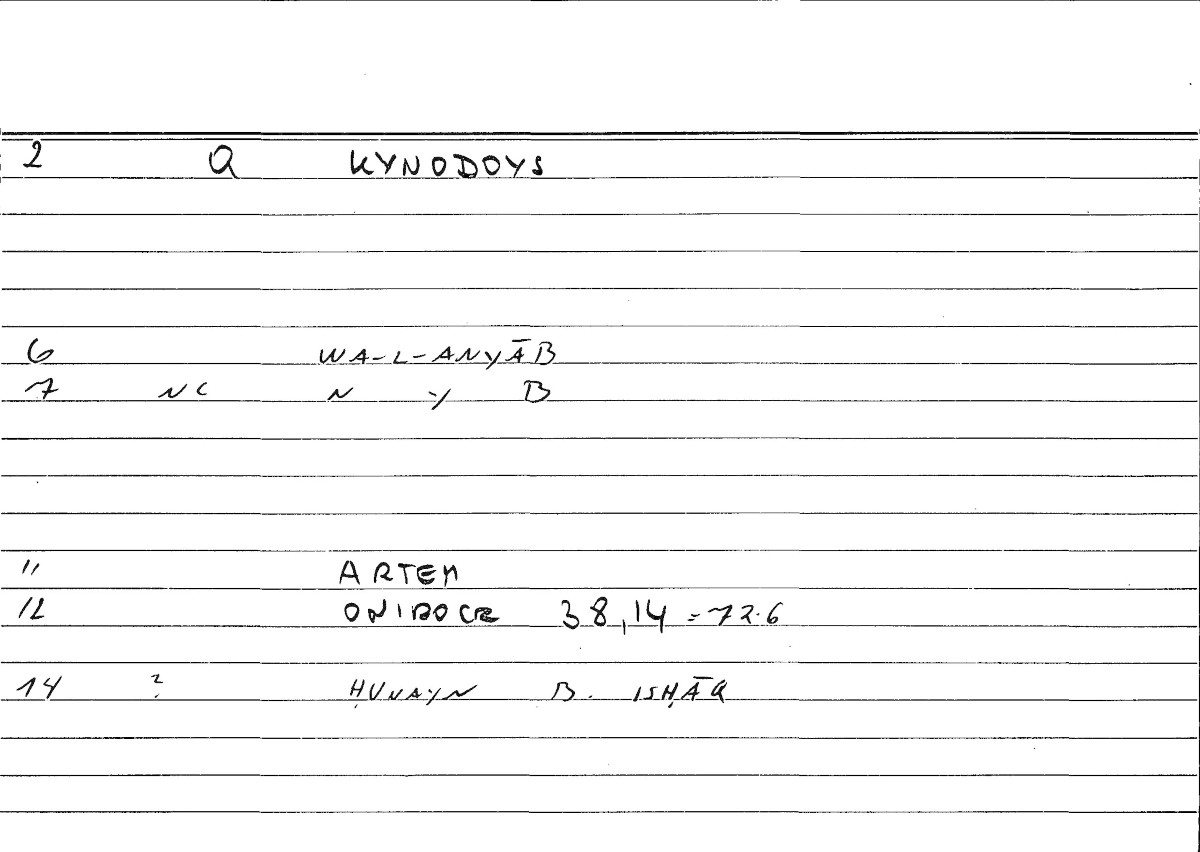 2 Q KYNODOYS
6 WA-L-ANYĀB
7 NC N Y B
11 ARTEM
12 ONIROCR 38,14 = 72.6
14 ? ḤUNAYN B. ISḤĀQ